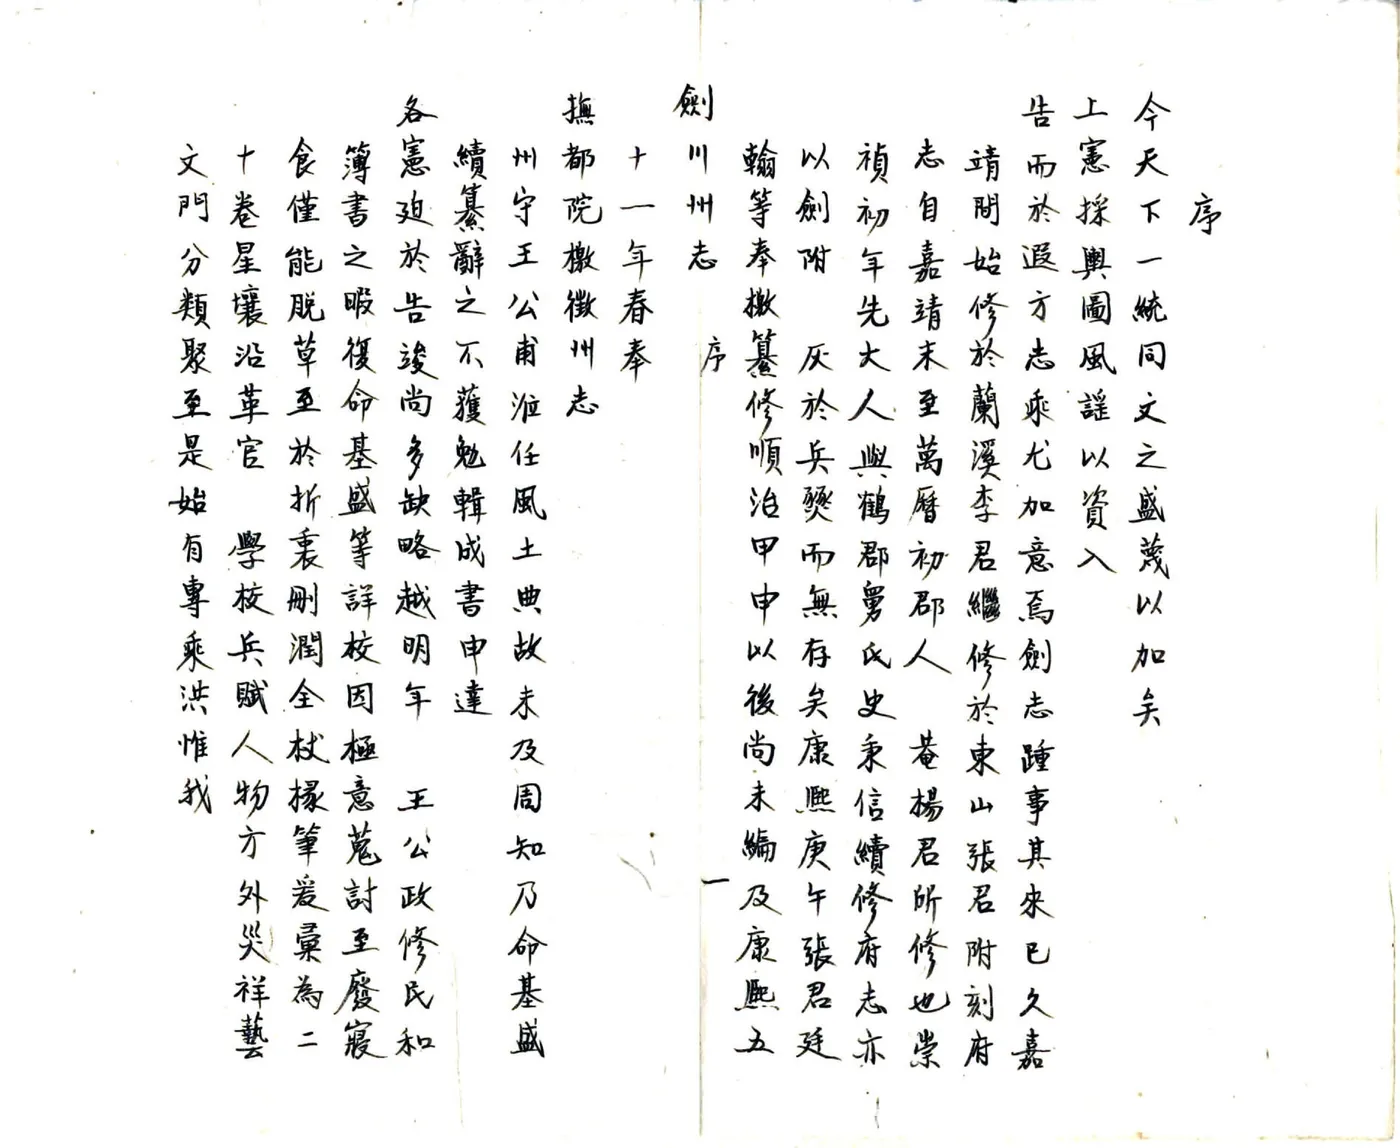 序
今天下一統同文之盛蔑以加矣
上憲採輿圖風謠以資入
告而於遐方志乘尤加意焉劍志踵事其來已久嘉
靖間始修於蘭溪李君繼修於東山張君附刻府
志自嘉靖末至萬曆初郡人 菴楊君所修也崇
禎初年先大人與鶴郡舅氏史秉信續修府志亦
以劍附 灰於兵燹而無存矣康熙庚午張君廷
翰等奉檄纂修順治甲申以後尚未編及康熙五
劍川州志 序 一
十一年春奉
撫都院檄徵州志
州守王公甫涖任風土典故未及周知乃命基盛
續纂辭之不獲勉輯成書申達
各憲廹於告竣尚多缺略越明年 王公政修民和
簿書之暇復命基盛等詳校因極意蒐討至廢寢
食僅能脱草至於折衷刪潤全杖椽筆爰彙為二
十卷星壤沿革官 學校兵賦人物方外災祥藝
文門分類聚至是始有專乘洪惟我